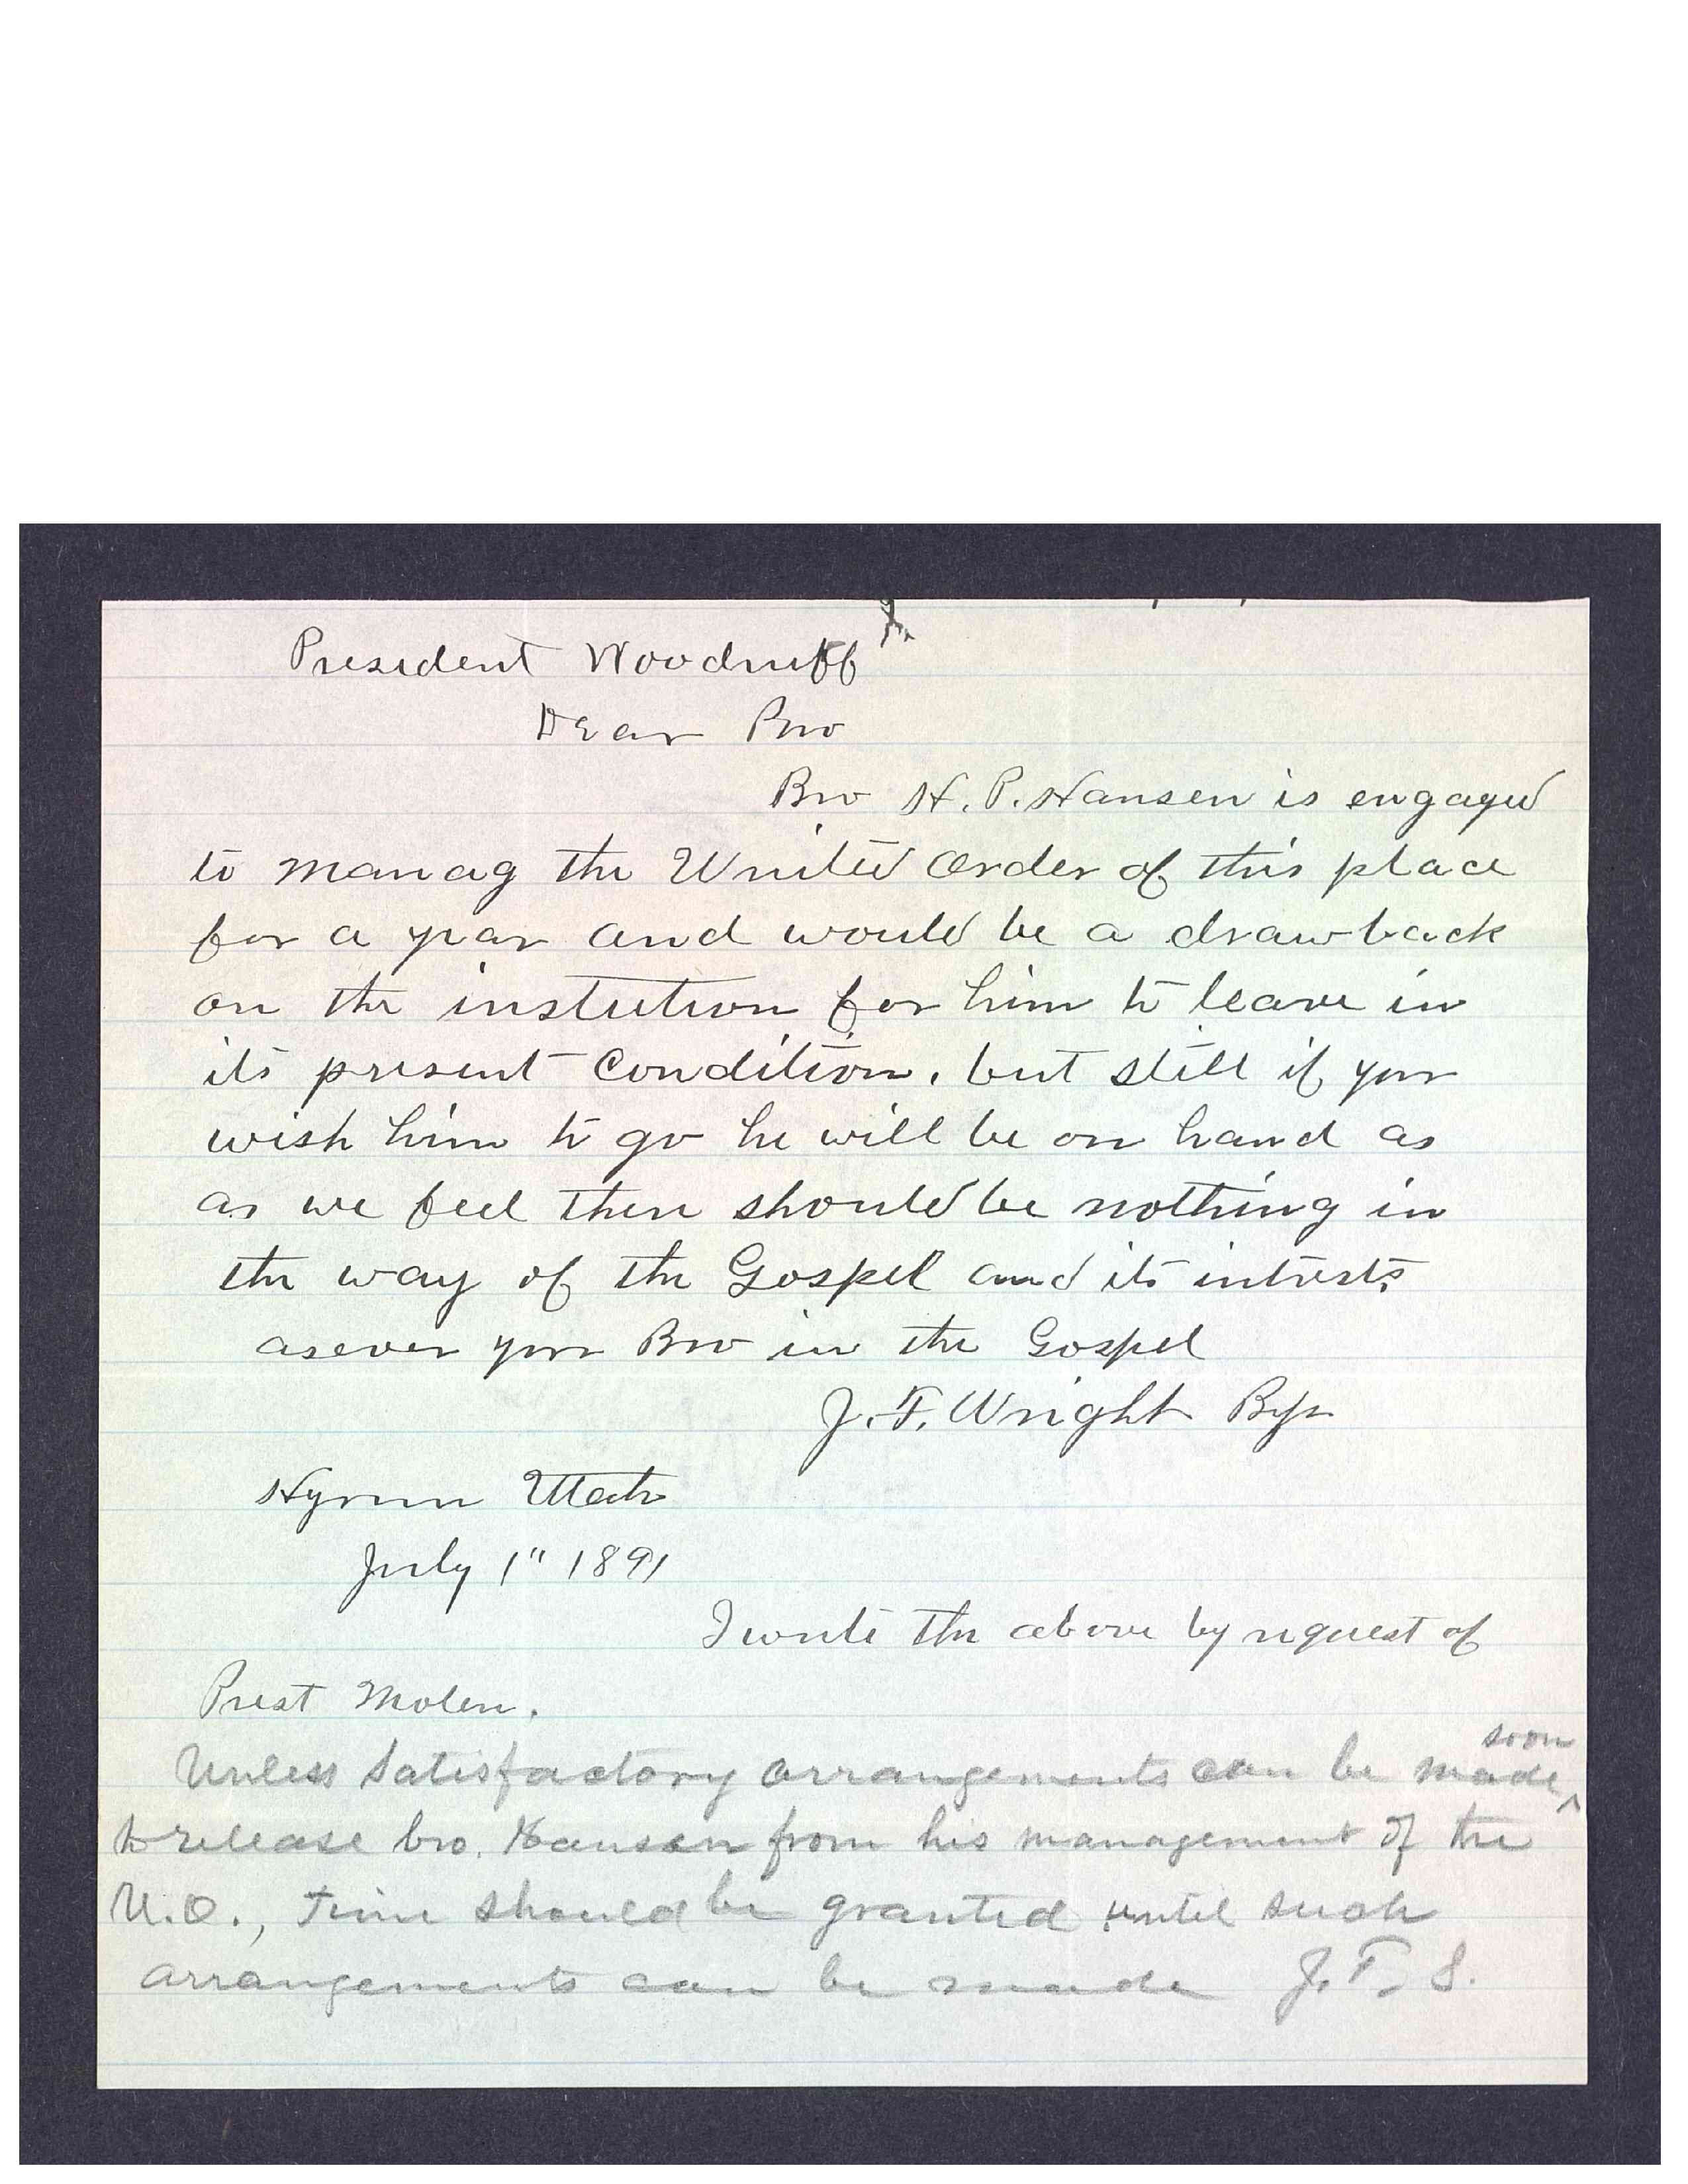 President Woodruff
Dear Bro
Bro H. P. Hansen is engaged
to manag the United Order of this place
for a year and would be a drawback
on the instution for him to leave in
its present Condition, but still if you
wish him to go he will be on hand as
as we feel there should be nothing in
the way of the Gospel and its intrests
as ever your Bro in the Gospel
J. F. Wright Bp
Hyrum Utah
July 1" 1891
I write the above by request of
Prest Molen.
Unless satisfactory arrangements can be made ^soon
to release bro. Hansen from his management of the
U.O., time should be granted until such
arrangements can be made J. F. S.